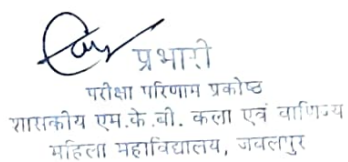 प्रभारी
परीक्षा परिणाम प्रकोष्ठ
शासकीय एम.के.बी. कला एवं वाणिज्य
महिला महाविद्यालय, जबलपुर